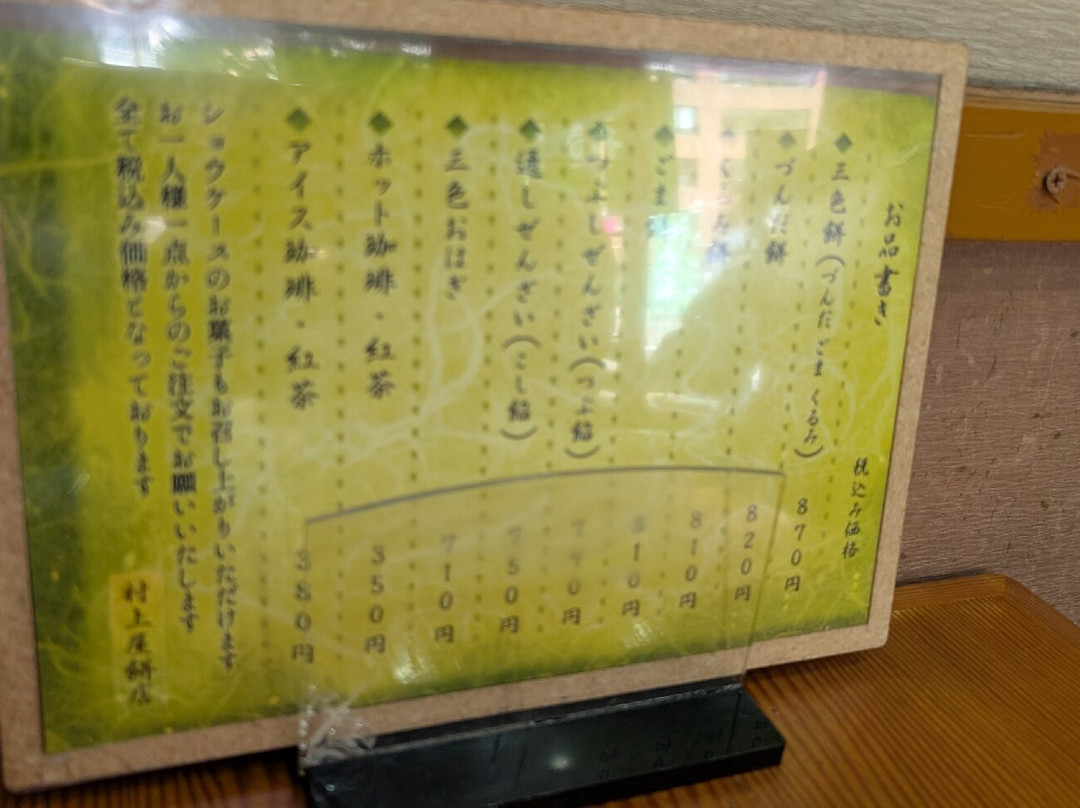 お品書き
税込み価格
◆三色餅(づんだごまくるみ) 870円
◆づんだ餅 820円
◆くるみ餅 810円
◆ごま餅 810円
◆つぶしぜんざい(つぶ餡)
◆漉しぜんざい(こし餡) 750円
◆三色おはぎ 710円
◆ホット珈琲・紅茶 350円
◆アイス珈琲・紅茶 380円
ショウケースのお菓子もお召し上がりいただけます
お一人様一点からのご注文でお願いいたします
全て税込み価格となっております
村上屋餅店